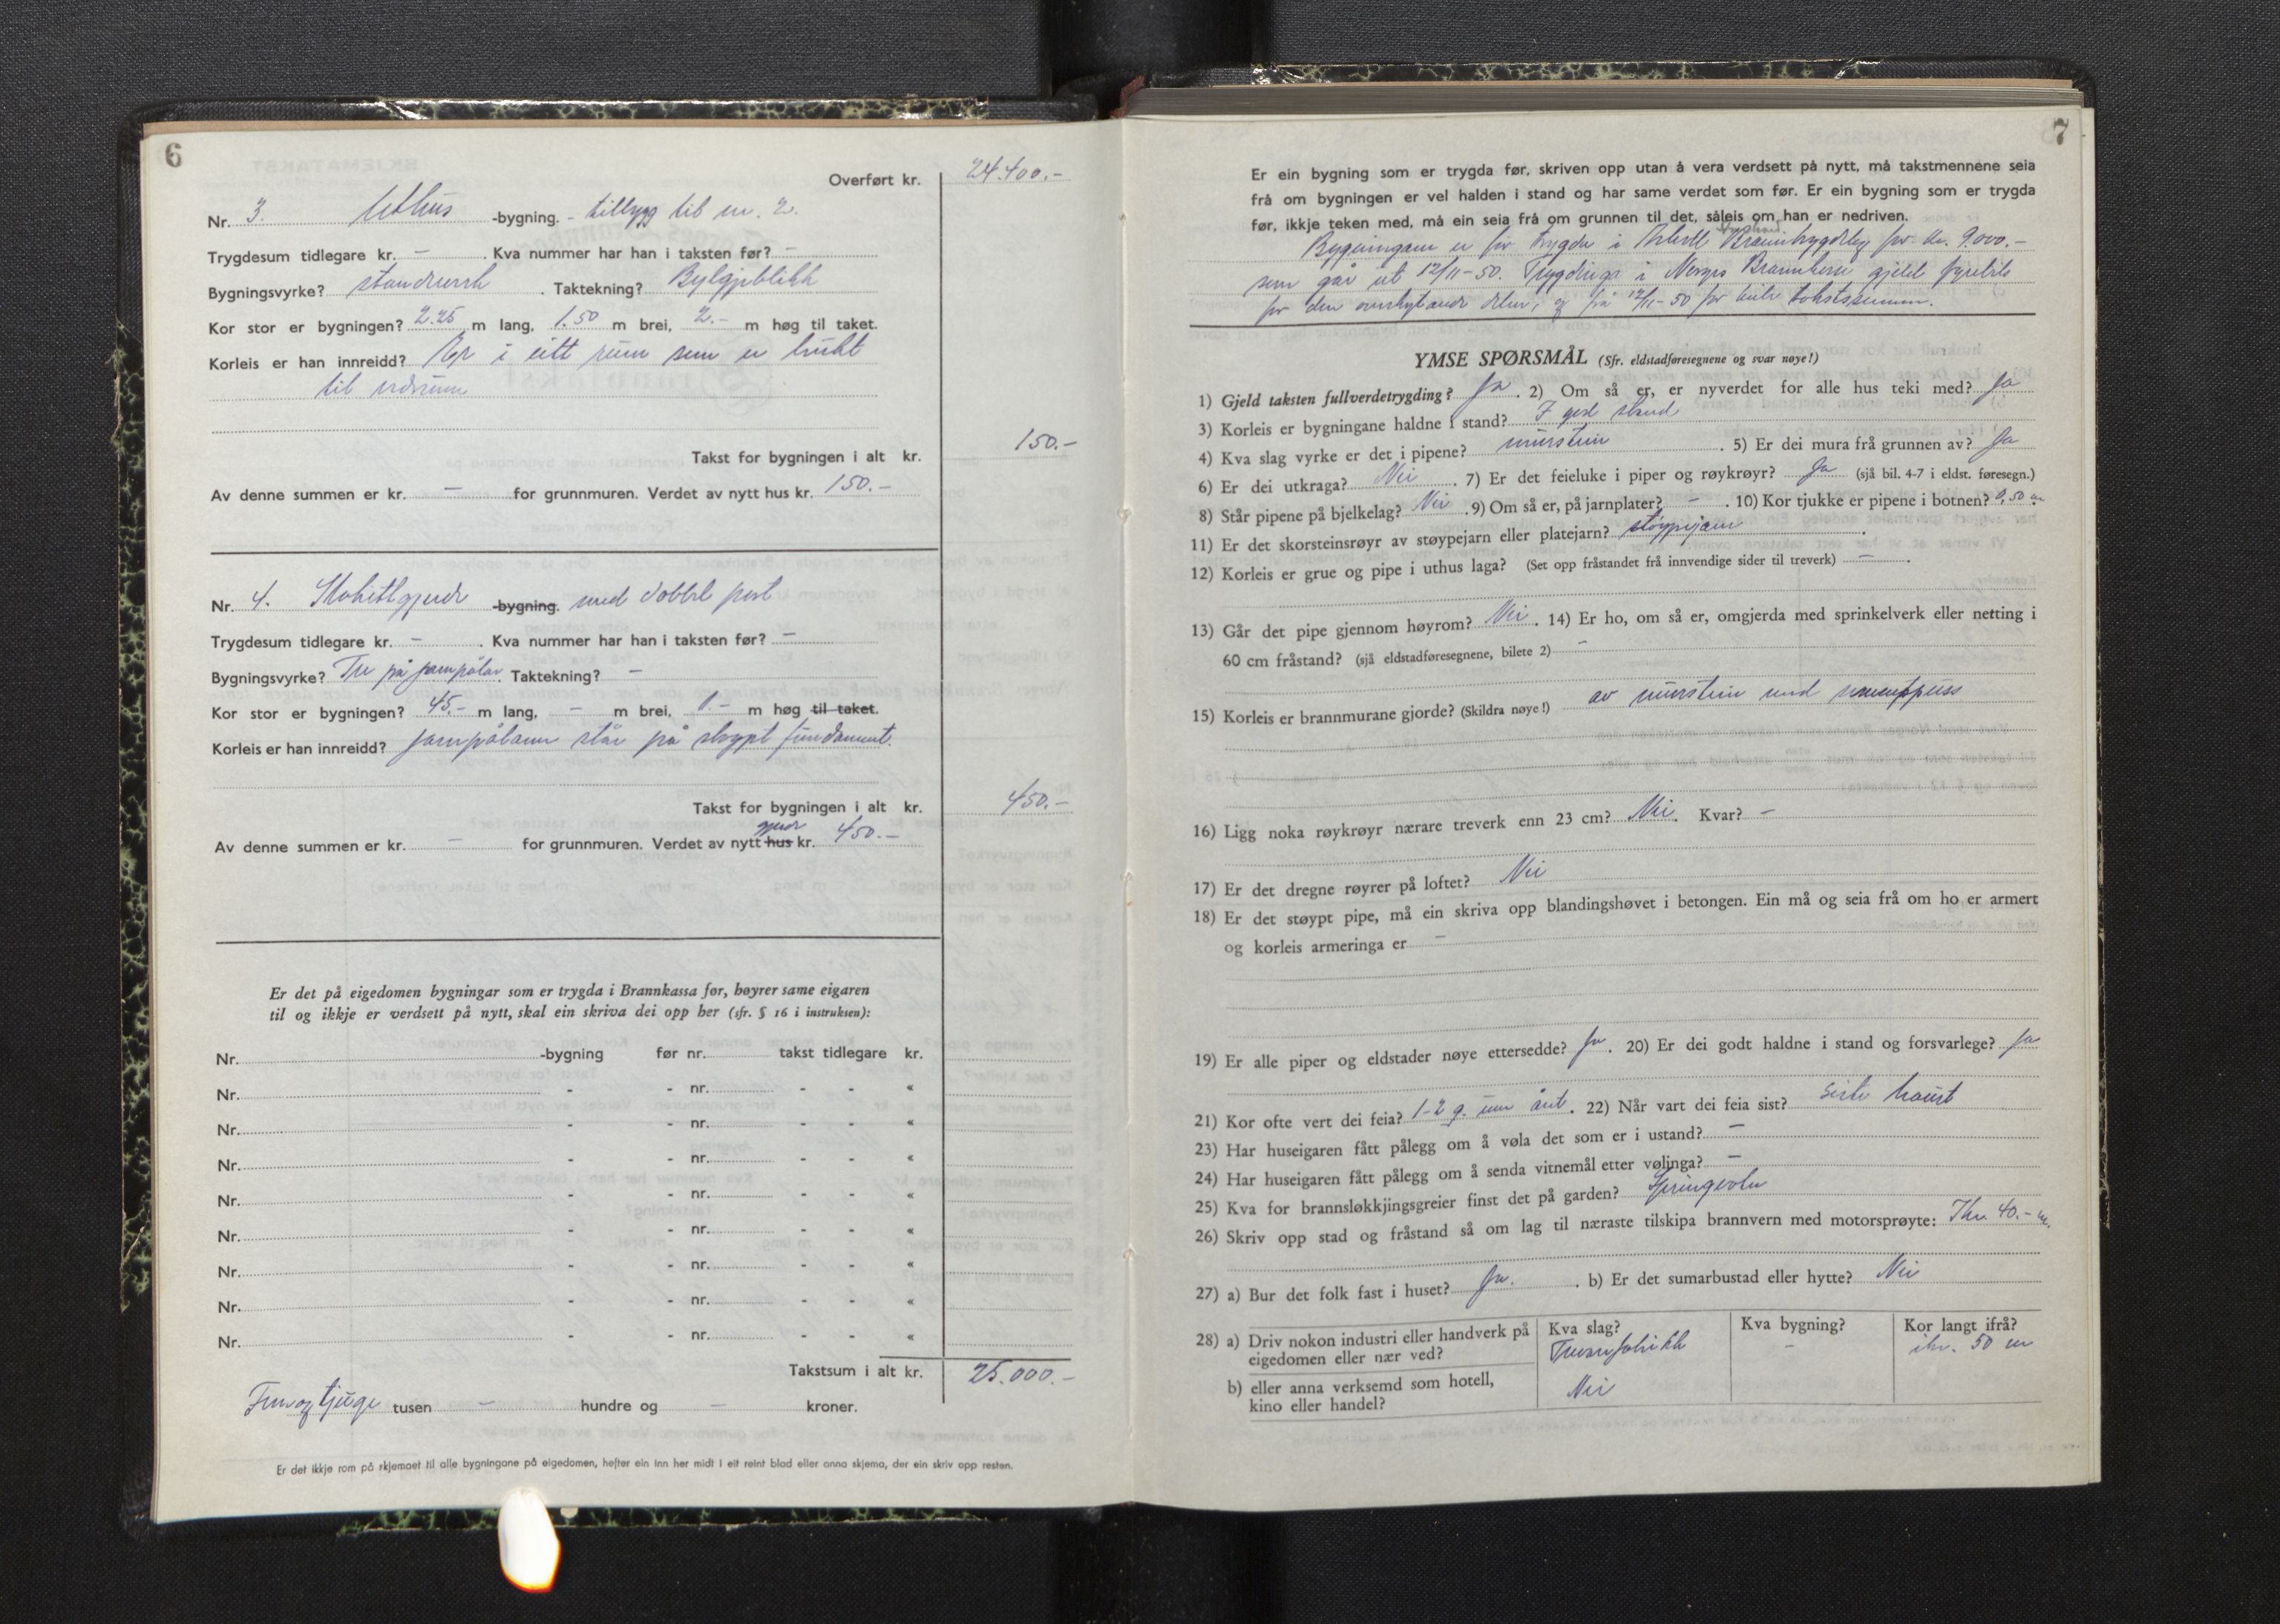 6
Overført kr. 24.400.-
Nr. 3. Uthus -bygning. - tilbygg til nr. 2.
Trygdesum tidlegare kr. - . Kva nummer har han i taksten før? -
Bygningsvyrke? standverk . Taktekning? Bylgjeblikk
Kor stor er bygningen? 2.25 m lang, 1.50 m brei, 2.- m høg til taket.
Korleis er han innreidd? Er i eitt rum som er brukt
til vedrum
Takst for bygningen i alt kr. 150.-
Av denne summen er kr. - for grunnmuren. Verdet av nytt hus kr. 150.-
Nr. 4. Stakittgjerde -bygning. med dobbel port
Trygdesum tidlegare kr. - . Kva nummer har han i taksten før? -
Bygningsvyrke? Tre på jarnpålar. Taktekning? -
Kor stor er bygningen? 45.- m lang, - m brei, 1.- m høg til taket.
Korleis er han innreidd? Jarnpålane står på støypt fundament.
Takst for bygningen i alt kr. 450.-
gjerde
Av denne summen er kr. - for grunnmuren. Verdet av nytt hus kr. 450.-
Er det på eigedomen bygningar som er trygda i Brannkassa før, høyrer same eigaren
til og ikkje er verdsett på nytt, skal ein skriva dei opp her (sfr. § 16 i instruksen):
Nr. -bygning før nr. takst tidlegare kr.
Nr. - - nr. - - «
Nr. - - nr. - - «
Nr. - - nr. - - «
Nr. - - nr. - - «
Nr. - - nr. - - «
Nr. - - nr. - - «
Nr. - - nr. - - «
Nr. - - nr. - - «
Takstsum i alt kr. 25.000.-
Femogtjuge tusen - hundre og - kroner.
Er det ikkje rom på skjemaet til alle bygningane på eigedomen, hefter ein inn her midt i eit reint blad eller anna skjema, der ein skriv opp resten.
7
Er ein bygning som er trygda før, skriven opp utan å vera verdsett på nytt, må takstmennene seia
frå om bygningen er vel halden i stand og har same verdet som før. Er ein bygning som er trygda
før, ikkje teken med, må ein seia frå om grunnen til det, såleis om han er nedriven.
Bygningane er før trygda i Branntrygdelag for kr. 9.000.-
som går ut 12/11-50. Trygdinga i Norges Brannkasse gjeld fyrebils
for den overskytande delen, og frå 12/11-50 for heile takstsummen.
YMSE SPØRSMÅL (Sfr. eldstadføresegnene og svar nøye!)
1) Gjeld taksten fullverdetrygding? Ja . 2) Om så er, er nyverdet for alle hus teki med? Ja
3) Korleis er bygningane haldne i stand? I god stand
4) Kva slag vyrke er det i pipene? murstein . 5) Er dei mura frå grunnen av? Ja
6) Er dei utkraga? Nei . 7) Er det feieluke i piper og røykrøyr? Ja (sjå bil. 4-7 i eldst. føresegn.)
8) Står pipene på bjelkelag? Nei . 9) Om så er, på jarnplater? - . 10) Kor tjukke er pipene i botnen? 0,50 m
11) Er det skorsteinsrøyr av støypejarn eller platejarn? støypejarn .
12) Korleis er grue og pipe i uthus laga? (Set opp fråstandet frå innvendige sider til treverk) - .
13) Går det pipe gjennom høyrom? Nei . 14) Er ho, om så er, omgjerda med sprinkelverk eller netting i
60 cm fråstand? (sjå eldstadføresegnene, bilete 2) -
15) Korleis er brannmurane gjorde? (Skildra nøye!) av murstein med sementpuss
16) Ligg noka røykrøyr nærare treverk enn 23 cm? Nei. Kvar? -
17) Er det dregne røyrer på loftet? Nei
18) Er det støypt pipe, må ein skriva opp blandingshøvet i betongen. Ein må og seia frå om ho er armert
og korleis armeringa er -
19) Er alle piper og eldstader nøye ettersedde? Ja . 20) Er dei godt haldne i stand og forsvarlege? Ja
21) Kor ofte vert dei feia? 1-2 g. um året . 22) Når vart dei feia sist? siste haust
23) Har huseigaren fått pålegg om å vøla det som er i ustand? -
24) Har huseigaren fått pålegg om å senda vitnemål etter vølinga? -
25) Kva for brannsløkkjingsgreier finst det på garden? Springvatn
26) Skriv opp stad og fråstand så om lag til næraste tilskipa brannvern med motorsprøyte: 40.- m.
27) a) Bur det folk fast i huset? Ja. . b) Er det sumarbustad eller hytte? Nei
28) a) Driv nokon industri eller handverk på Kva slag? Kva bygning? Kor langt ifrå?
eigedomen eller nær ved? - ikr. 50 m
b) eller anna verksemd som hotell, Nei
kino eller handel?